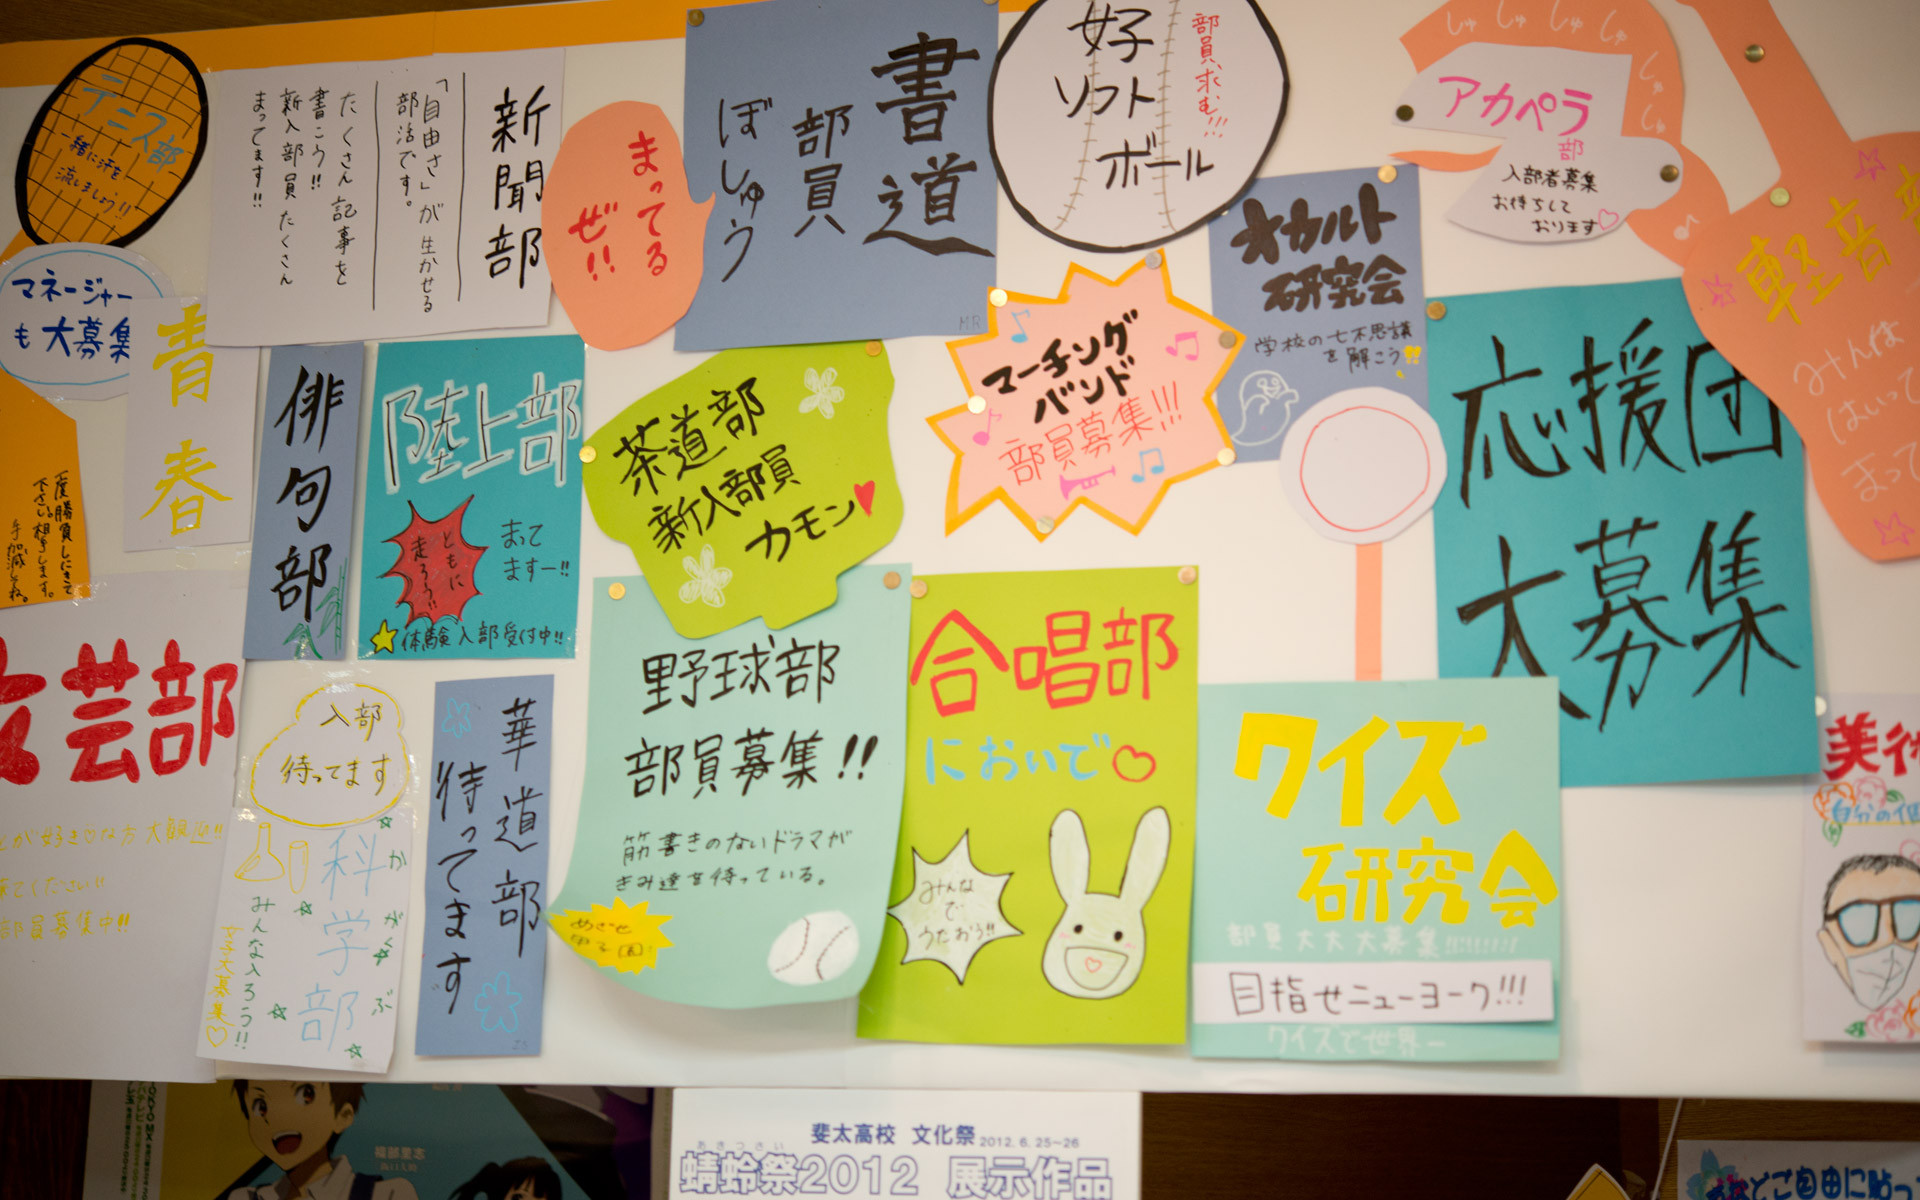 テニス部
一緒に汗を
流しましょう!!
マネージャー
も大募集
青春
一度勝負しにきて
下さい。相手します。
手加減してね。
新聞部
「自由さ」が生かせる
部活です。
たくさん記事を
書こう!!
新入部員たくさん
まってます!!
まってる
ぜ!!
書道
部員
ぼしゅう
MR
好
ソフト
ボール
部員求む!!!
しゅしゅしゅしゅ
しゅ
しゅ
アカペラ
部
入部者募集
お待ちして
おります♡
軽音部
みんな
はいって
まって
オカルト
研究会
学校の七不思議
を解こう!!
マーチング
バンド
部員募集!!!
応援団
大募集
俳句部
陸上部
ともに
走ろう!!
まって
ますー!!
体験入部受付中!!
茶道部
新入部員
カモン♥
文芸部
が好きな方大歓迎!!
てください!!
部員募集中!!
入部
待ってます
科学部
かがくぶ
みんな入ろう!!
大募集♡
華道部
待ってます
野球部
部員募集!!
筋書きのないドラマが
きみ達を待っている。
めざせ
甲子園!
合唱部
においで♡
みんな
で
うたおう!!
クイズ
研究会
部員大大大募集!!!!!!!!
目指せニューヨーク!!!
クイズで世界一
美術
自分の個
TOKYO MX
福部里志
斐太高校 文化祭 2012. 6. 25~26
あきつさい
蜻蛉祭2012 展示作品
どこ自由に貼っ